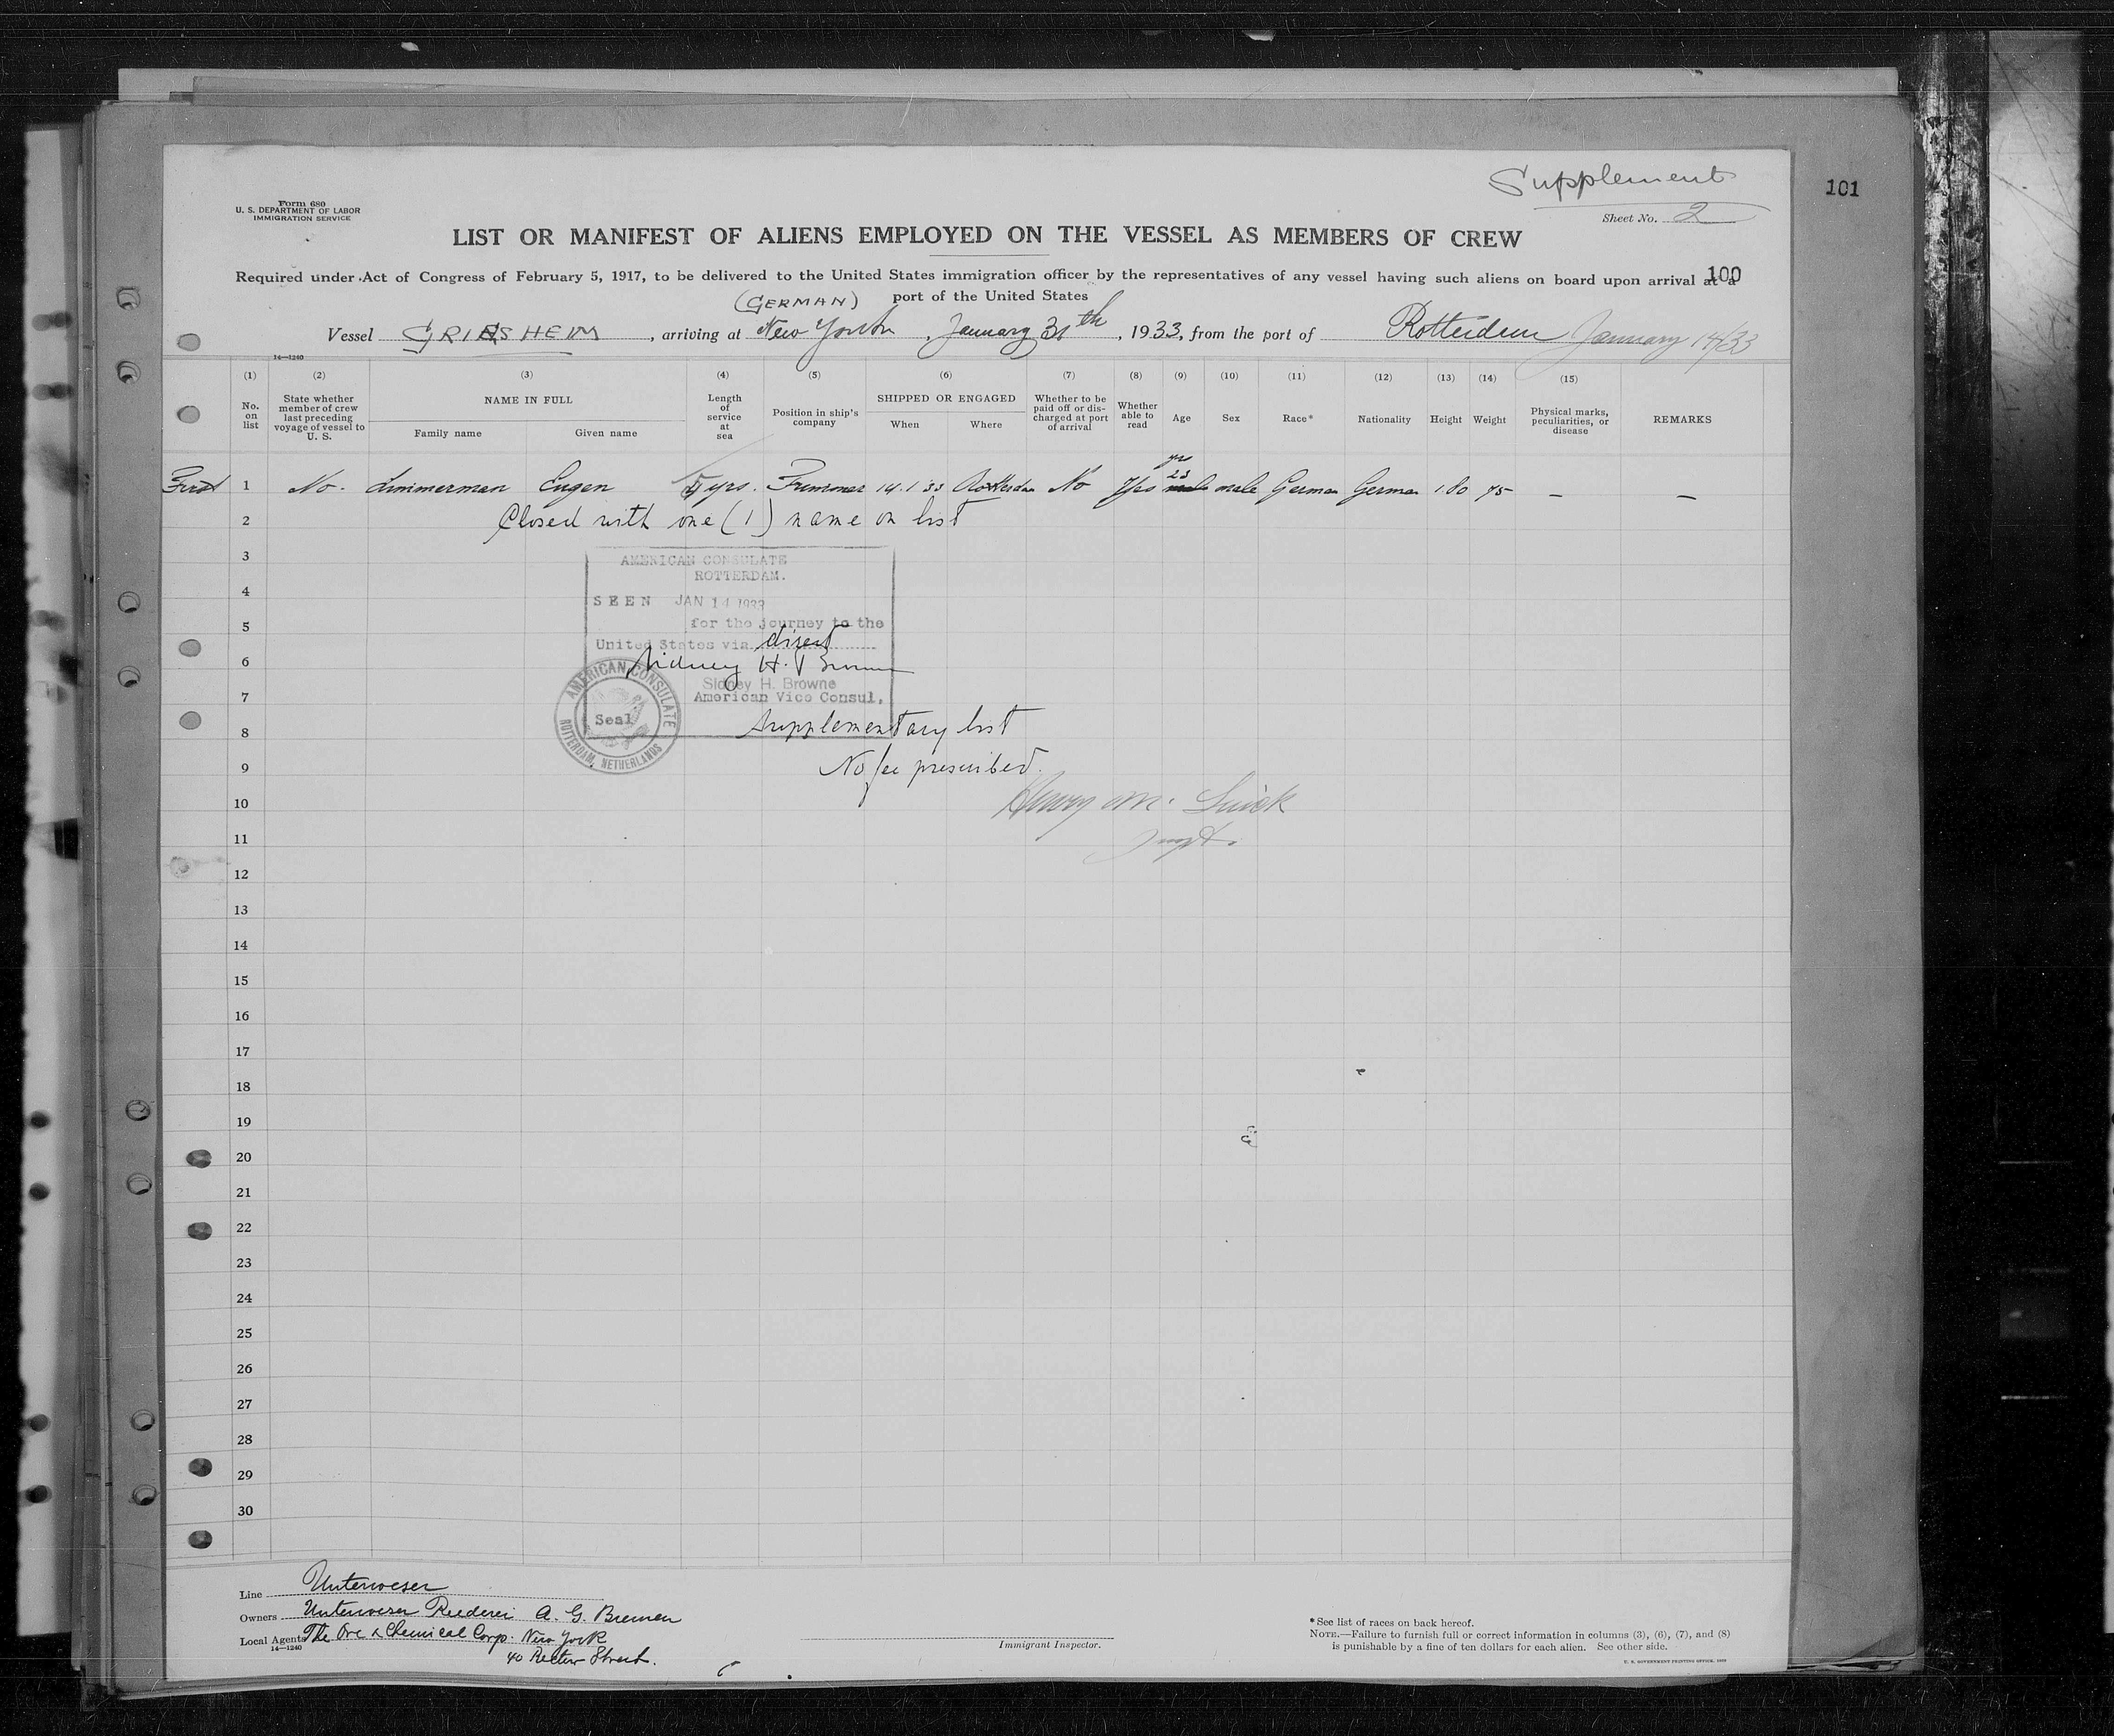 Supplement
101
Form 680
U. S. DEPARTMENT OF LABOR
IMMIGRATION SERVICE
Sheet No. 2
LIST OR MANIFEST OF ALIENS EMPLOYED ON THE VESSEL AS MEMBERS OF CREW
Required under Act of Congress of February 5, 1917, to be delivered to the United States immigration officer by the representatives of any vessel having such aliens on board upon arrival at a
100
(GERMAN) port of the United States
Vessel GRIESHEIM, arriving at New York, January 31th, 1933, from the port of Rotterdam January 14/33
14—1240
(1) (2) (3) (4) (5) (6) (7) (8) (9) (10) (11) (12) (13) (14) (15)
No. on list
State whether member of crew last preceding voyage of vessel to U. S.
NAME IN FULL
Family name Given name
Length of service at sea
Position in ship's company
SHIPPED OR ENGAGED
When Where
Whether to be paid off or discharged at port of arrival
Whether able to read
Age
Sex
Race*
Nationality
Height
Weight
Physical marks, peculiarities, or disease
REMARKS
First 1 No. Zimmerman Eugen 5 yrs. Trimmer 14.1.33 Rotterdam No Yes 23 yrs male German German 1.80 75 — —
2 Closed with one (1) name on list
3
AMERICAN CONSULATE
ROTTERDAM.
4
SEEN JAN 14 1933
5
for the journey to the
United States via direct
6
Sidney H. Browne
Sidney H. Browne
7
American Vice Consul.
AMERICAN CONSULATE
ROTTERDAM, NETHERLANDS
Seal
8 Supplementary list
9 No fee prescribed.
10 Henry M.
11
12
13
14
15
16
17
18
19
20
21
22
23
24
25
26
27
28
29
30
Line Unterweser
Owners Unterweser Reederei A. G. Bremen
Local Agents The Ore & Chemical Corp. New York
14—1240
40 Rector Street.
Immigrant Inspector.
*See list of races on back hereof.
NOTE.—Failure to furnish full or correct information in columns (3), (6), (7), and (8)
is punishable by a fine of ten dollars for each alien. See other side.
U. S. GOVERNMENT PRINTING OFFICE